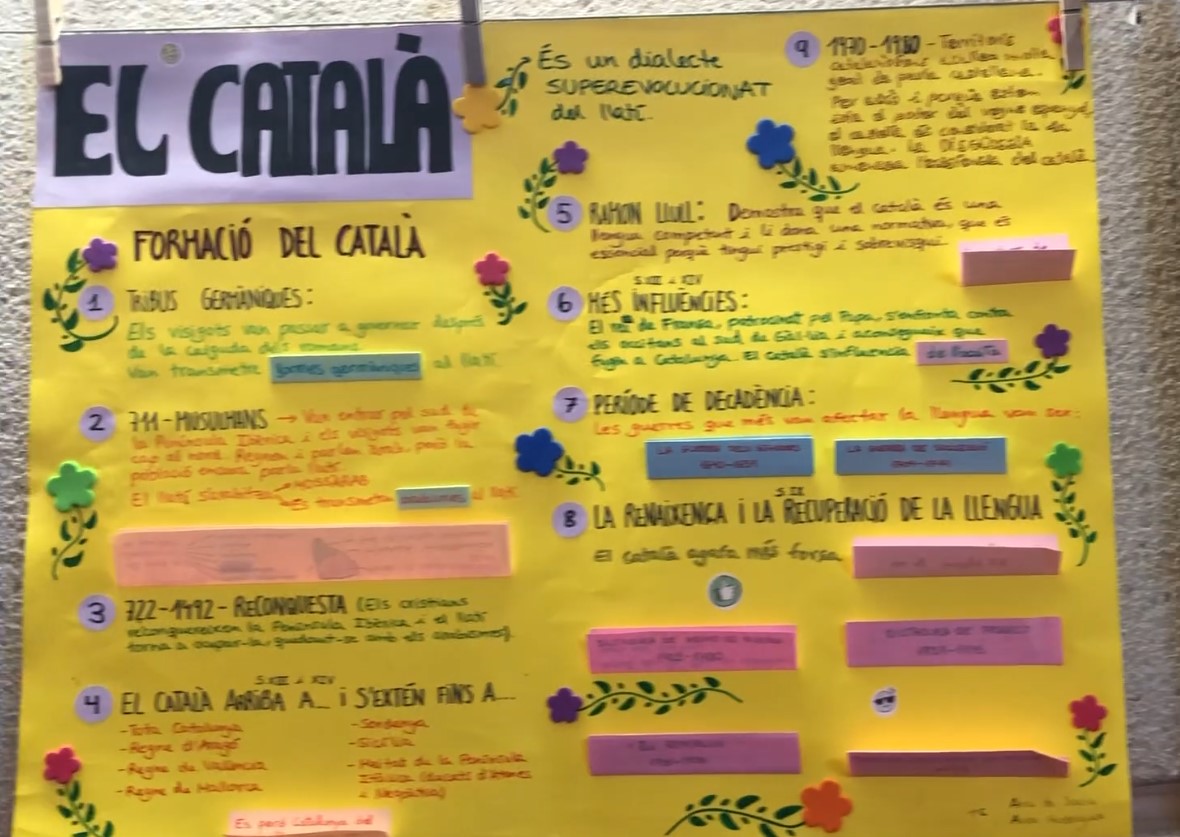 EL CATALÀ
És un dialecte
SUPEREVOLUCIONAT
del llatí.
FORMACIÓ DEL CATALÀ
1 TRIBUS GERMÀNIQUES:
Els visigots van passar a governar després
de la caiguda dels romans.
Van transmetre formes germàniques al llatí.
2 711-MUSULMANS → Van entrar pel sud de
la Península Ibèrica i els visigots van fugir
cap al nord. Regnen i parlen àrab, però la
població encara parla llatí.
El llatí MOSSÀRAB
Es transmeten arabismes al llatí
3 722-1492-RECONQUESTA (Els cristians
reconquereixen la Península Ibèrica i el llatí
torna a ocupar-la, quedant-se amb els arabismes).
S.XIII i XIV
4 EL CATALÀ ARRIBA A... i S'EXTÉN FINS A...
-Tota Catalunya
-Regne d'Aragó
-Regne de València
-Regne de Mallorca
-Sardenya
-Sicília
-Meitat de la Península
Itàlica (ducats d'Atenes
i Neopàtria)
Es perd Catalunya del
5 RAMON LLULL: Demostra que el català és una
llengua competent i li dona una normativa, que és
essencial perquè tingui prestigi i sobrevisqui.
S.XIII i XIV
6 MÉS INFLUÈNCIES:
El rei de França, patrocinat pel Papa, s'enfronta contra
els occitans al sud de Gàl·lia i aconsegueix que
fugin a Catalunya. El català s'influencia de l'occità
7 PERÍODE DE DECADÈNCIA:
Les guerres que més van afectar la llengua van ser:
LA GUERRA DELS SEGADORS
1640-1659
LA GUERRA DE SUCCESSIÓ
S.XIX
8 LA RENAIXENÇA i LA RECUPERACIÓ DE LA LLENGUA
El català agafa més força
DICTADURA DE PRIMO DE RIVERA
1923-1930
DICTADURA DE FRANCO
9 1970-1980-Territoris
catalanoparlants acullen molta
gent de parla castellana.
Per això i perquè estem
sota el poder del regne espanyol,
el castellà és considerat la 1a
llengua. La DIGLÒSSIA
amenaça l'existència del català.